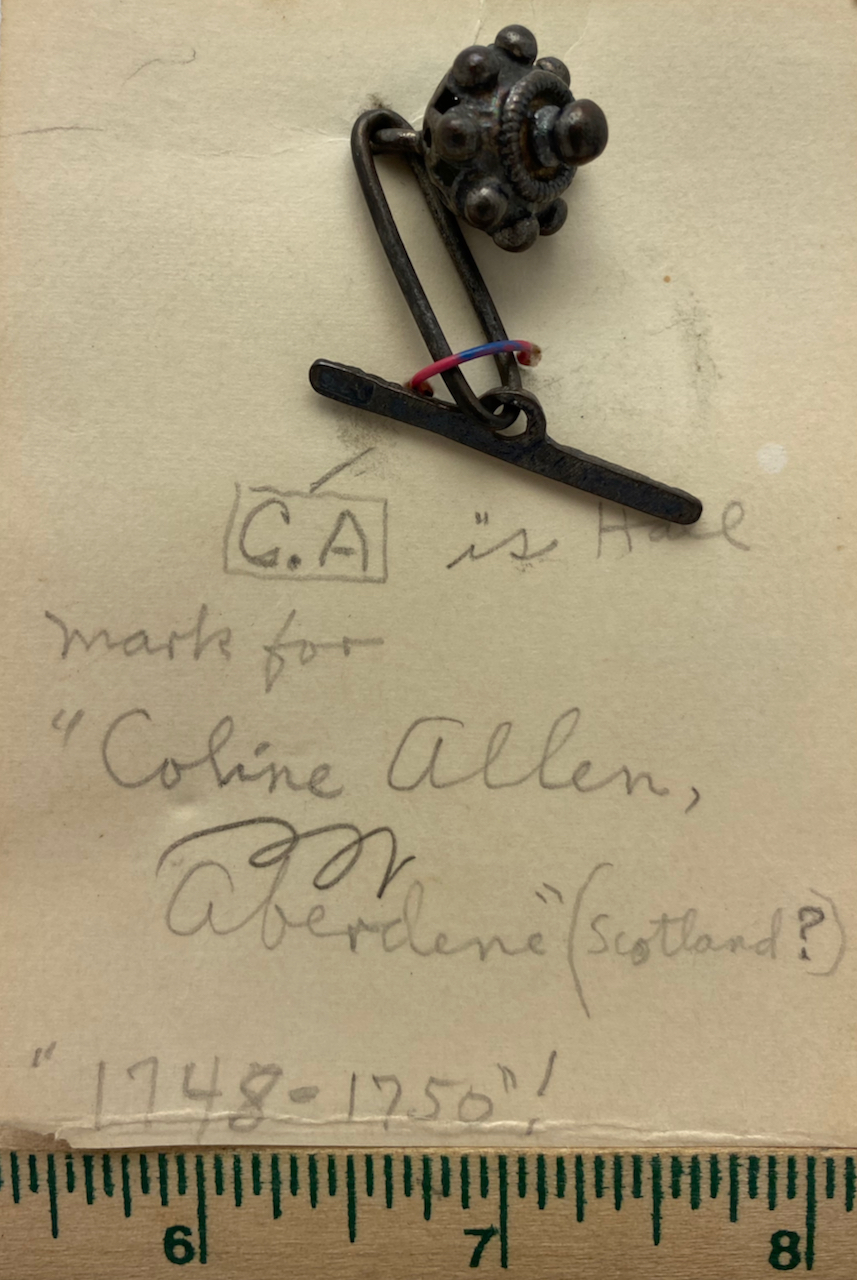 C.A is Hall
mark for
"Coline Allen,
Aberdene" (Scotland?)
"1748-1750"!
6 7 8